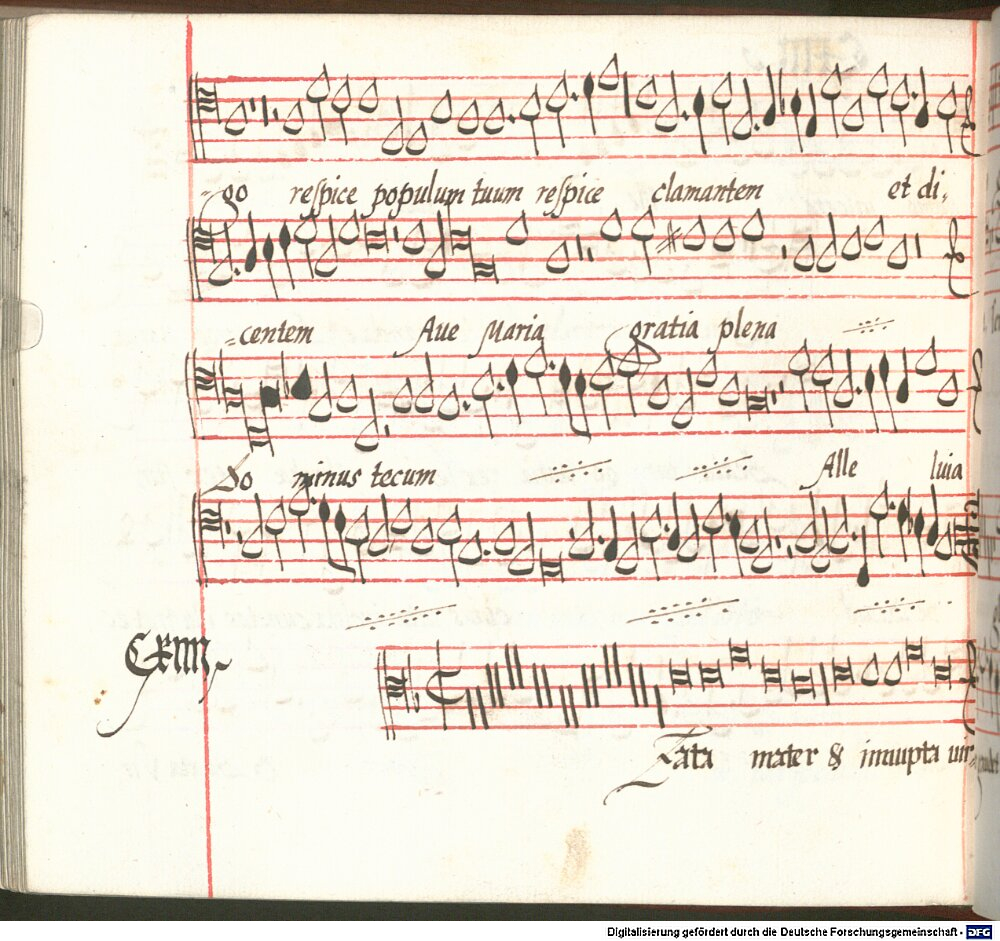 =go respice populum tuum respice clamantem et di,
=centem Aue Maria gratia plena
Do minus tecum Alle luia
CXIIII
Eata mater & innupta uir=
Digitalisierung gefördert durch die Deutsche Forschungsgemeinschaft - DFG